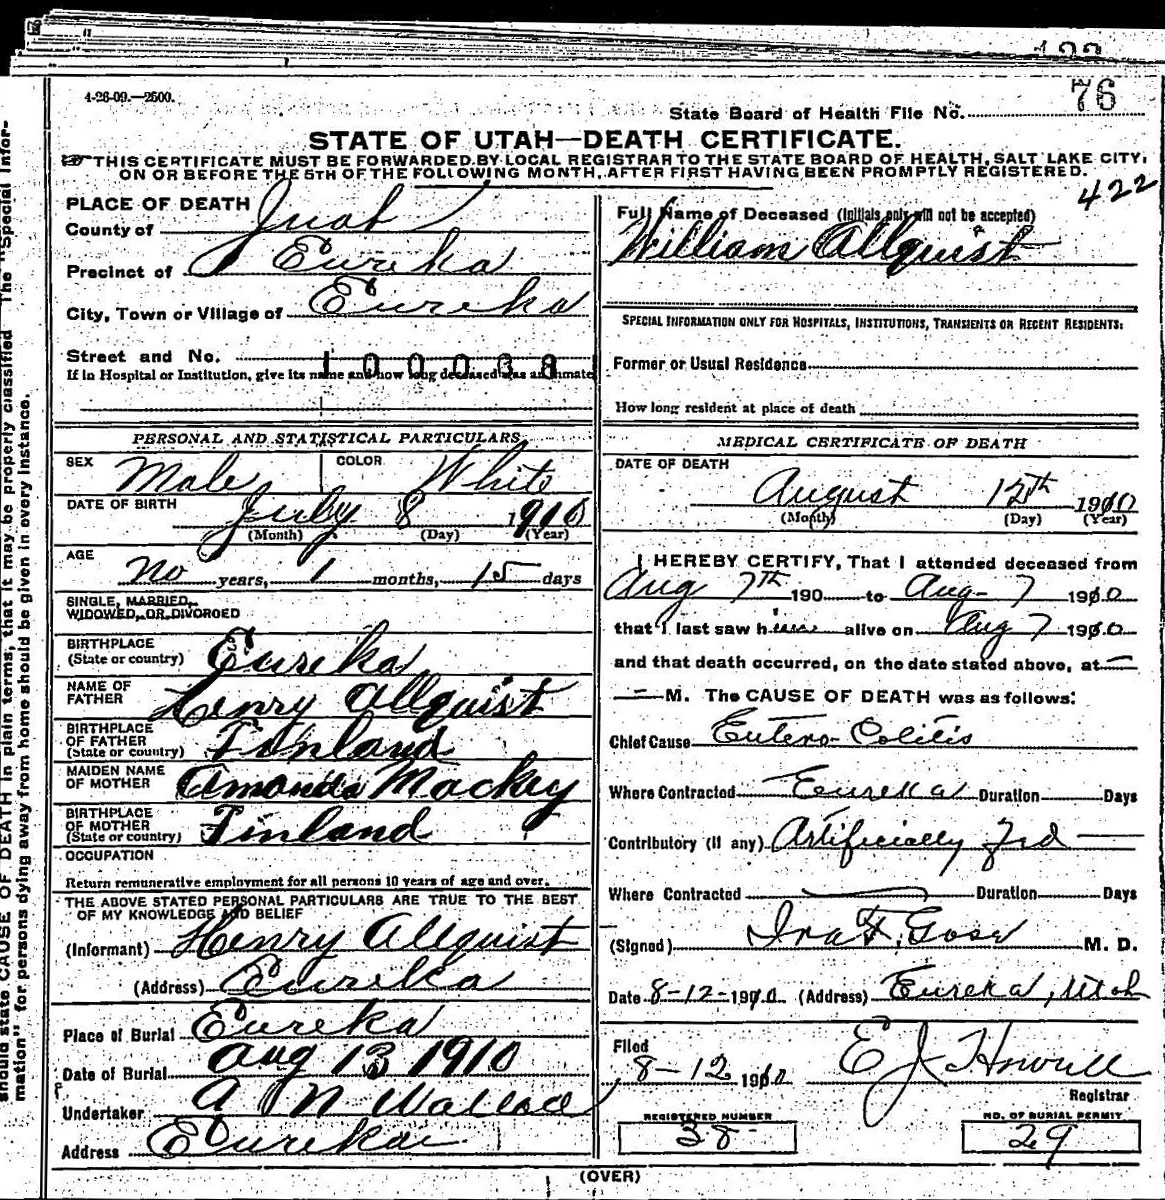 4-26-09.—2500.
76
State Board of Health File No.
STATE OF UTAH—DEATH CERTIFICATE.
THIS CERTIFICATE MUST BE FORWARDED BY LOCAL REGISTRAR TO THE STATE BOARD OF HEALTH, SALT LAKE CITY,
ON OR BEFORE THE 5TH OF THE FOLLOWING MONTH, AFTER FIRST HAVING BEEN PROMPTLY REGISTERED.
422
PLACE OF DEATH
County of Juab
Precinct of Eureka
City, Town or Village of Eureka
Street and No.
1000038
If in Hospital or Institution, give its name and how long deceased was an inmate
PERSONAL AND STATISTICAL PARTICULARS
SEX Male COLOR White
DATE OF BIRTH July 8 1910
(Month) (Day) (Year)
AGE no years, 1 months, 15 days
SINGLE, MARRIED,
WIDOWED, OR DIVORCED
BIRTHPLACE
(State or country) Eureka
NAME OF
FATHER Henry Allquist
BIRTHPLACE
OF FATHER
(State or country) Finland
MAIDEN NAME
OF MOTHER Amanda Mackey
BIRTHPLACE
OF MOTHER
(State or country) Finland
OCCUPATION
Return remunerative employment for all persons 10 years of age and over.
THE ABOVE STATED PERSONAL PARTICULARS ARE TRUE TO THE BEST
OF MY KNOWLEDGE AND BELIEF
(Informant) Henry Allquist
(Address) Eureka
Place of Burial Eureka
Date of Burial Aug 13 1910
Undertaker A N Wallace
Address Eureka
Full Name of Deceased (Initials only will not be accepted)
William Allquist
SPECIAL INFORMATION ONLY FOR HOSPITALS, INSTITUTIONS, TRANSIENTS OR RECENT RESIDENTS:
Former or Usual Residence
How long resident at place of death
MEDICAL CERTIFICATE OF DEATH
DATE OF DEATH
August 12th 1910
(Month) (Day) (Year)
I HEREBY CERTIFY, That I attended deceased from
Aug 7th 190 to Aug 7 1910
that I last saw him alive on Aug 7 1910
and that death occurred, on the date stated above, at —
— M. The CAUSE OF DEATH was as follows:
Chief Cause Entero-Colitis
Where Contracted Eureka Duration Days
Contributory (if any) Artificially fed
Where Contracted Duration Days
(Signed) Ira F. M. D.
Date 8-12-1910 (Address) Eureka, Utah
Filed
8-12 1910 E J Howell
Registrar
REGISTERED NUMBER
38
NO. OF BURIAL PERMIT
29
(OVER)
should state CAUSE OF DEATH in plain terms, that it may be properly classified. The "Special Infor-
mation" for persons dying away from home should be given in every instance.